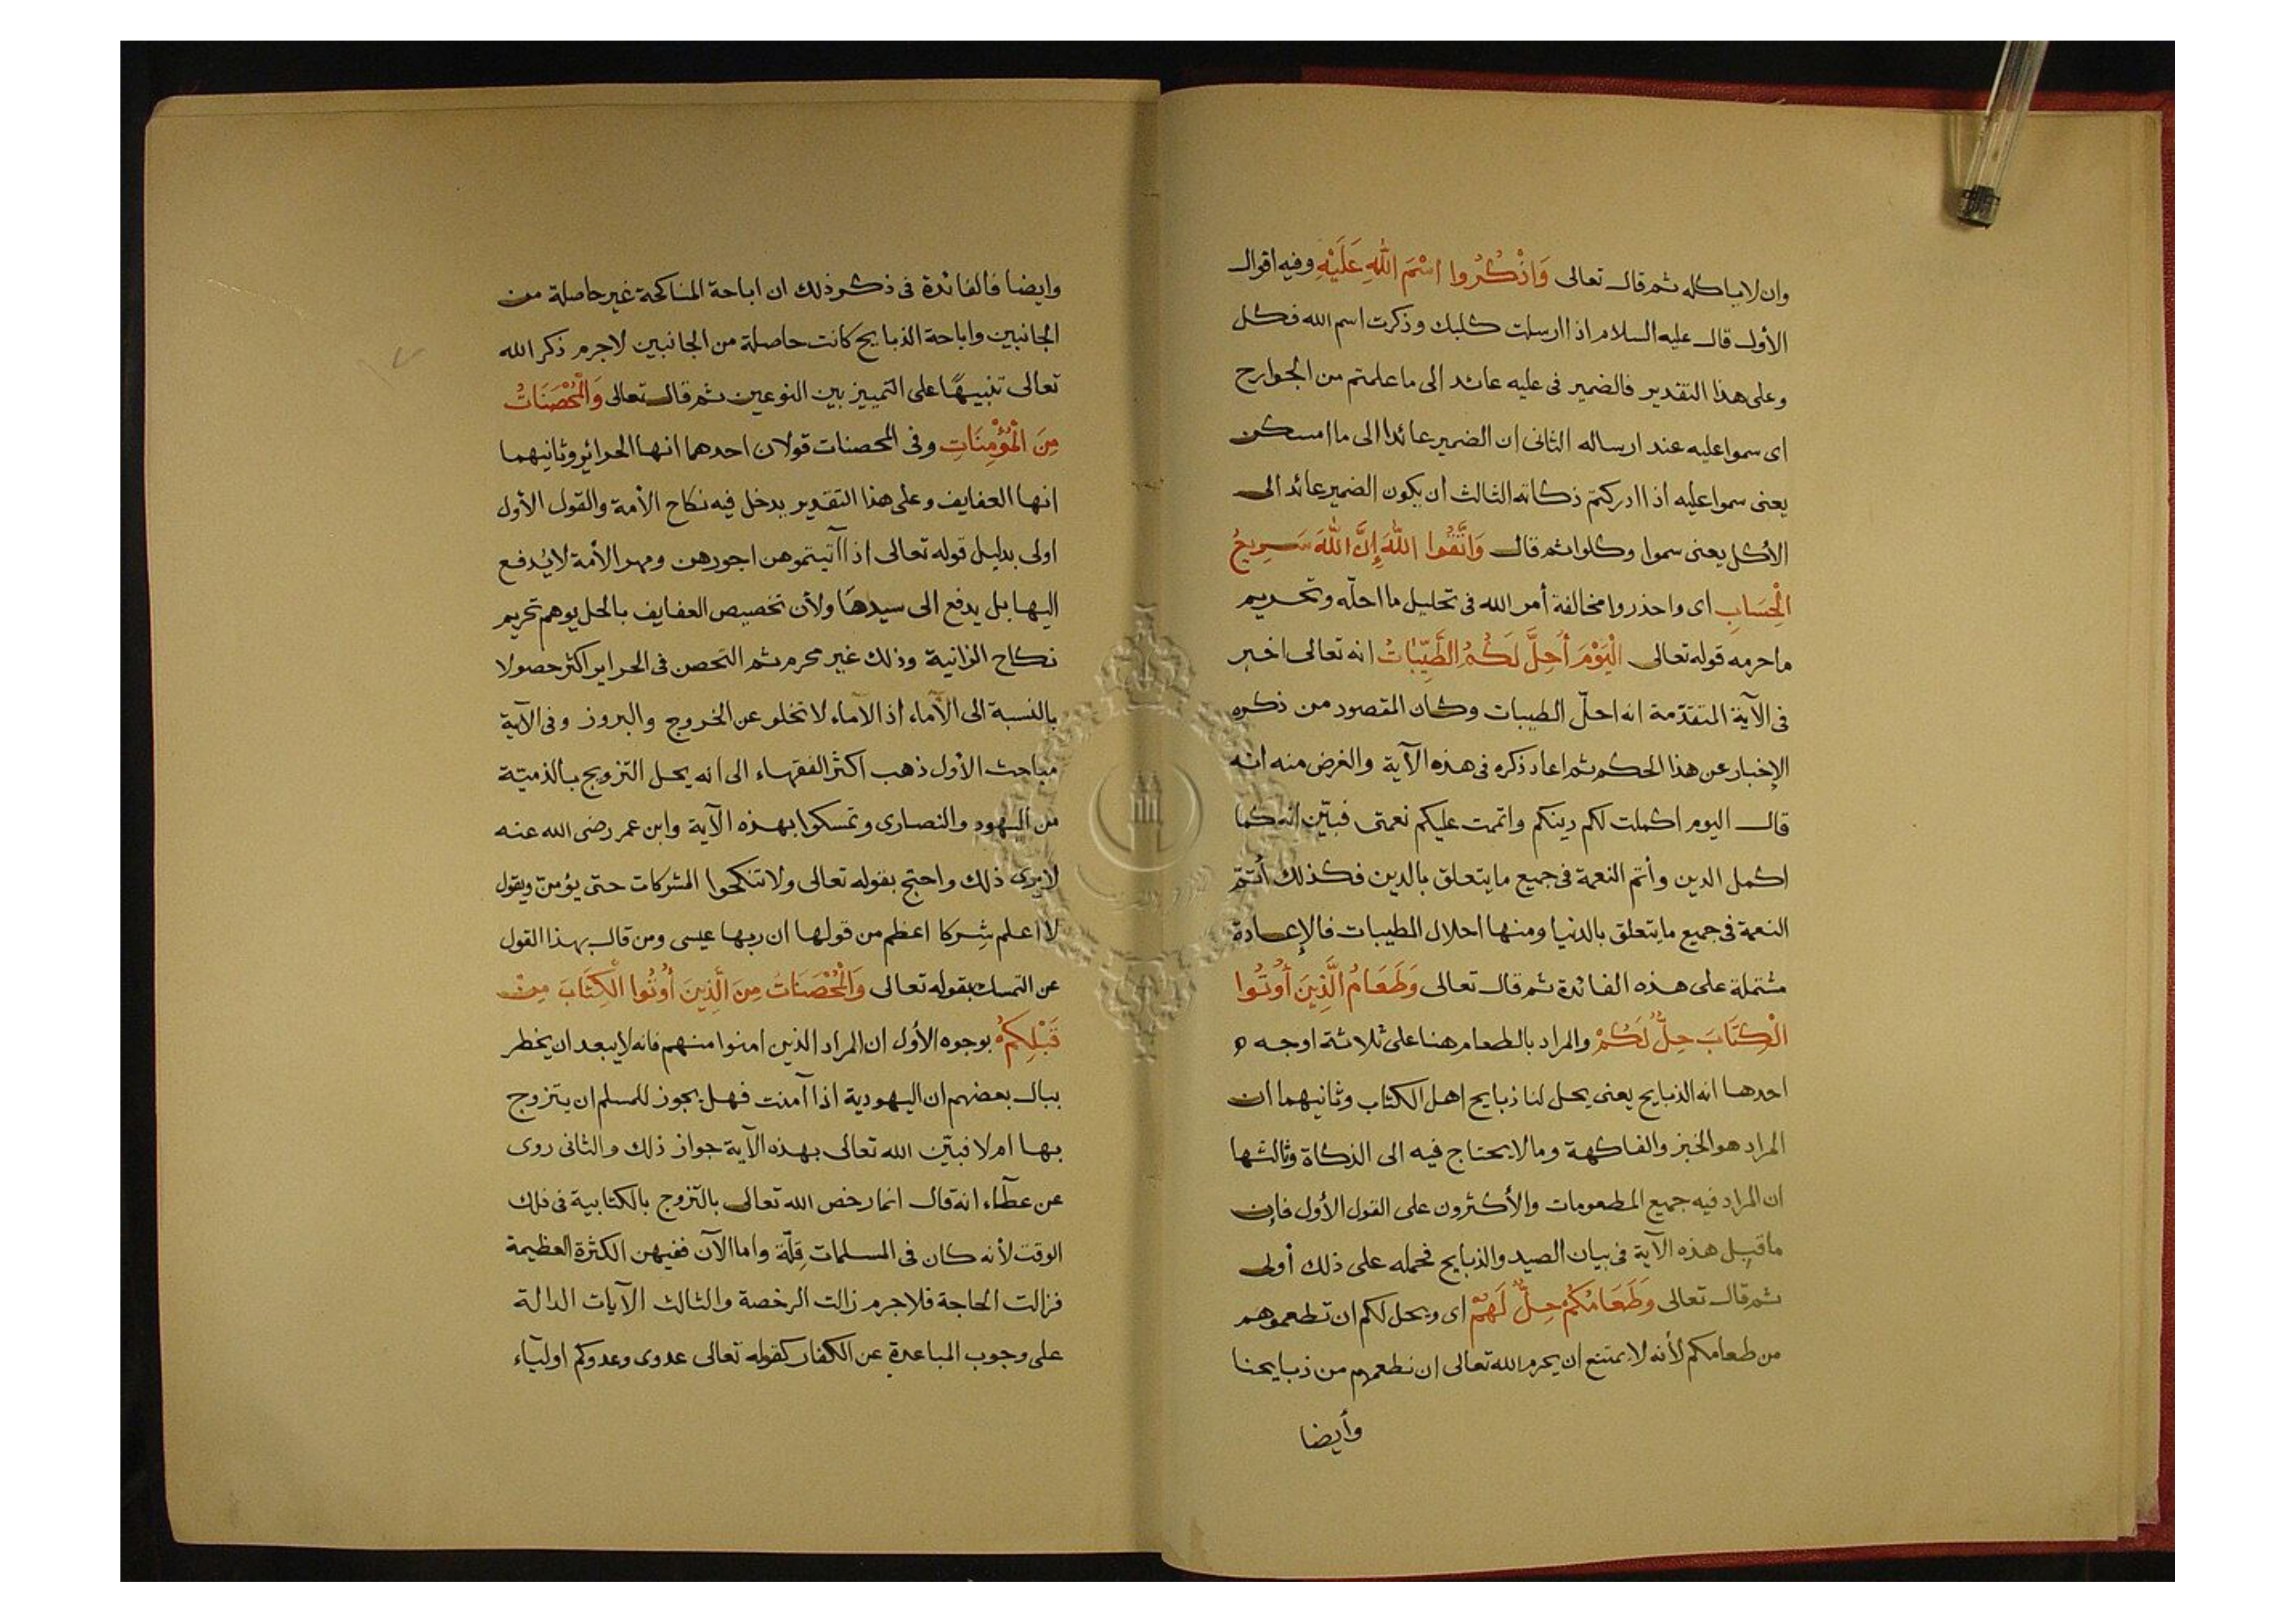 وان لا ياكله ثم قال تعالى وَاذْكُرُوا اسْمَ اللّٰهِ عَلَيْهِ وفيه اقوال
الأول قال عليه السلام اذا ارسلت كلبك وذكرت اسم الله فكل
وعلى هذا التقدير فالضمير فى عليه عائد الى ما علمتم من الجوارح
اى سموا عليه عند ارساله الثانى ان الضمير عائدا الى ما امسكن
يعنى سموا عليه اذا ادركتم ذكاته الثالث أن يكون الضمير عائد الى
الأكل يعنى سموا وكلوا ثم قال وَاتَّقُوا اللّٰهَ إِنَّ اللّٰهَ سَرِيعُ
الْحِسَابِ اى واحذروا مخالفة أمر الله فى تحليل ما احلّه وتحريم
ما حرمه قوله تعالى الْيَوْمَ أُحِلَّ لَكُمُ الطَّيِّبَاتُ انه تعالى اخبر
فى الآية المتقدّمة انه احلّ الطيبات وكان المقصود من ذكره
الإخبار عن هذا الحكم ثم اعاد ذكره فى هذه الآية والغرض منه انه
قال اليوم اكملت لكم دينكم واتممت عليكم نعمتى فبيّن انه كما
اكمل الدين وأتم النعمة فى جميع ما يتعلق بالدين فكذلك أتمّ
النعمة فى جميع ما يتعلق بالدنيا ومنها احلال الطيبات فالإعادة
مشتملة على هذه الفائدة ثم قال تعالى وَطَعَامُ الَّذِينَ أُوتُوا
الْكِتَابَ حِلٌّ لَكُمْ والمراد بالطعام هنا على ثلاثة اوجه
احدها انه الذبايح يعنى يحل لنا ذبايح اهل الكتاب وثانيهما ان
المراد هو الخبز والفاكهة وما لا يحتاج فيه الى الذكاة وثالثها
ان المراد فيه جميع المطعومات والأكثرون على القول الأول فإن
ما قبل هذه الآية فى بيان الصيد والذبايح فحمله على ذلك أولى
ثم قال تعالى وَطَعَامُكُمْ حِلٌّ لَهُمْ اى ويحل لكم ان تطعموهم
من طعامكم لأنه لا يمتنع ان يحرم الله تعالى ان نطعمهم من ذبايحنا
وأيضا
وايضا فالفائدة فى ذكر ذلك ان اباحة المناكحة غير حاصلة من
الجانبين واباحة الذبايح كانت حاصلة من الجانبين لا جرم ذكر الله
تعالى تنبيهًا على التمييز بين النوعين ثم قال تعالى وَالْمُحْصَنَاتُ
مِنَ الْمُؤْمِنَاتِ وفى المحصنات قولان احدهما انها الحرائر وثانيهما
انها العفايف وعلى هذا التقدير يدخل فيه نكاح الأمة والقول الأول
اولى بدليل قوله تعالى اذا آتيتموهن اجورهن ومهر الأمة لا يُدفع
اليها بل يدفع الى سيدهَا ولأن تخصيص العفايف بالحل يوهم تحريم
نكاح الزانية وذلك غير محرم ثم التحصن فى الحراير اكثر حصولا
بالنسبة الى الآماء اذ الآماء لا تخلو عن الخروج والبروز وفى الآية
مباحث الأول ذهب اكثر الفقهاء الى انه يحل التزويج بالذميّة
من اليهود والنصارى وتمسكوا بهذه الآية وابن عمر رضى الله عنه
لا يرى ذلك واحتج بقوله تعالى ولا تنكحوا المشركات حتى يؤمنّ ويقول
لا اعلم شِركا اعظم من قولها ان ربها عيسى ومن قال بهذا القول
عن التمسك بقوله تعالى وَالْمُحْصَنَاتُ مِنَ الَّذِينَ أُوتُوا الْكِتَابَ مِنْ
قَبْلِكُمْ بوجوه الأول ان المراد الذين امنوا منهم فانه لا يبعد ان يخطر
ببال بعضهم ان اليهودية اذا آمنت فهل يجوز للمسلم ان يتزوج
بها ام لا فبيّن الله تعالى بهذه الآية جواز ذلك والثانى روى
عن عطآء انه قال انما رخص الله تعالى بالتزوج بالكتابية فى ذلك
الوقت لأنه كان فى المسلمات قِلّة واما الآن ففيهن الكثرة العظيمة
فزالت الحاجة فلا جرم زالت الرخصة والثالث الآيات الدالة
على وجوب المباعدة عن الكفار كقوله تعالى عدوى وعدوكم اوليآء